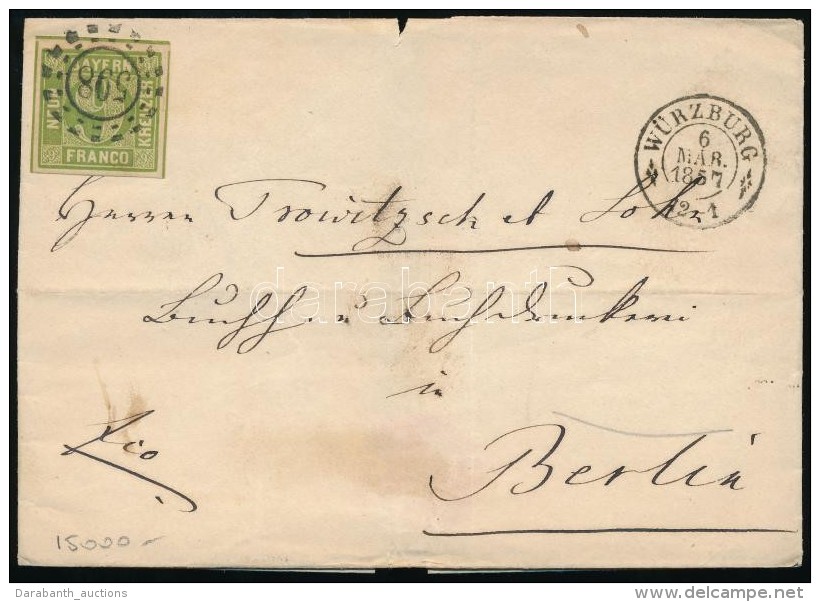 BAYERN
NEUN
KREUZER
FRANCO
598
WÜRZBURG
6
MÄR.
1857
12-1
Herren Trowitzsch et Sohn
Buchh. u Buchdruckerei
in
Berlin
fco
15000-
darabanth
Darabanth_auctions
www.delcampe.net